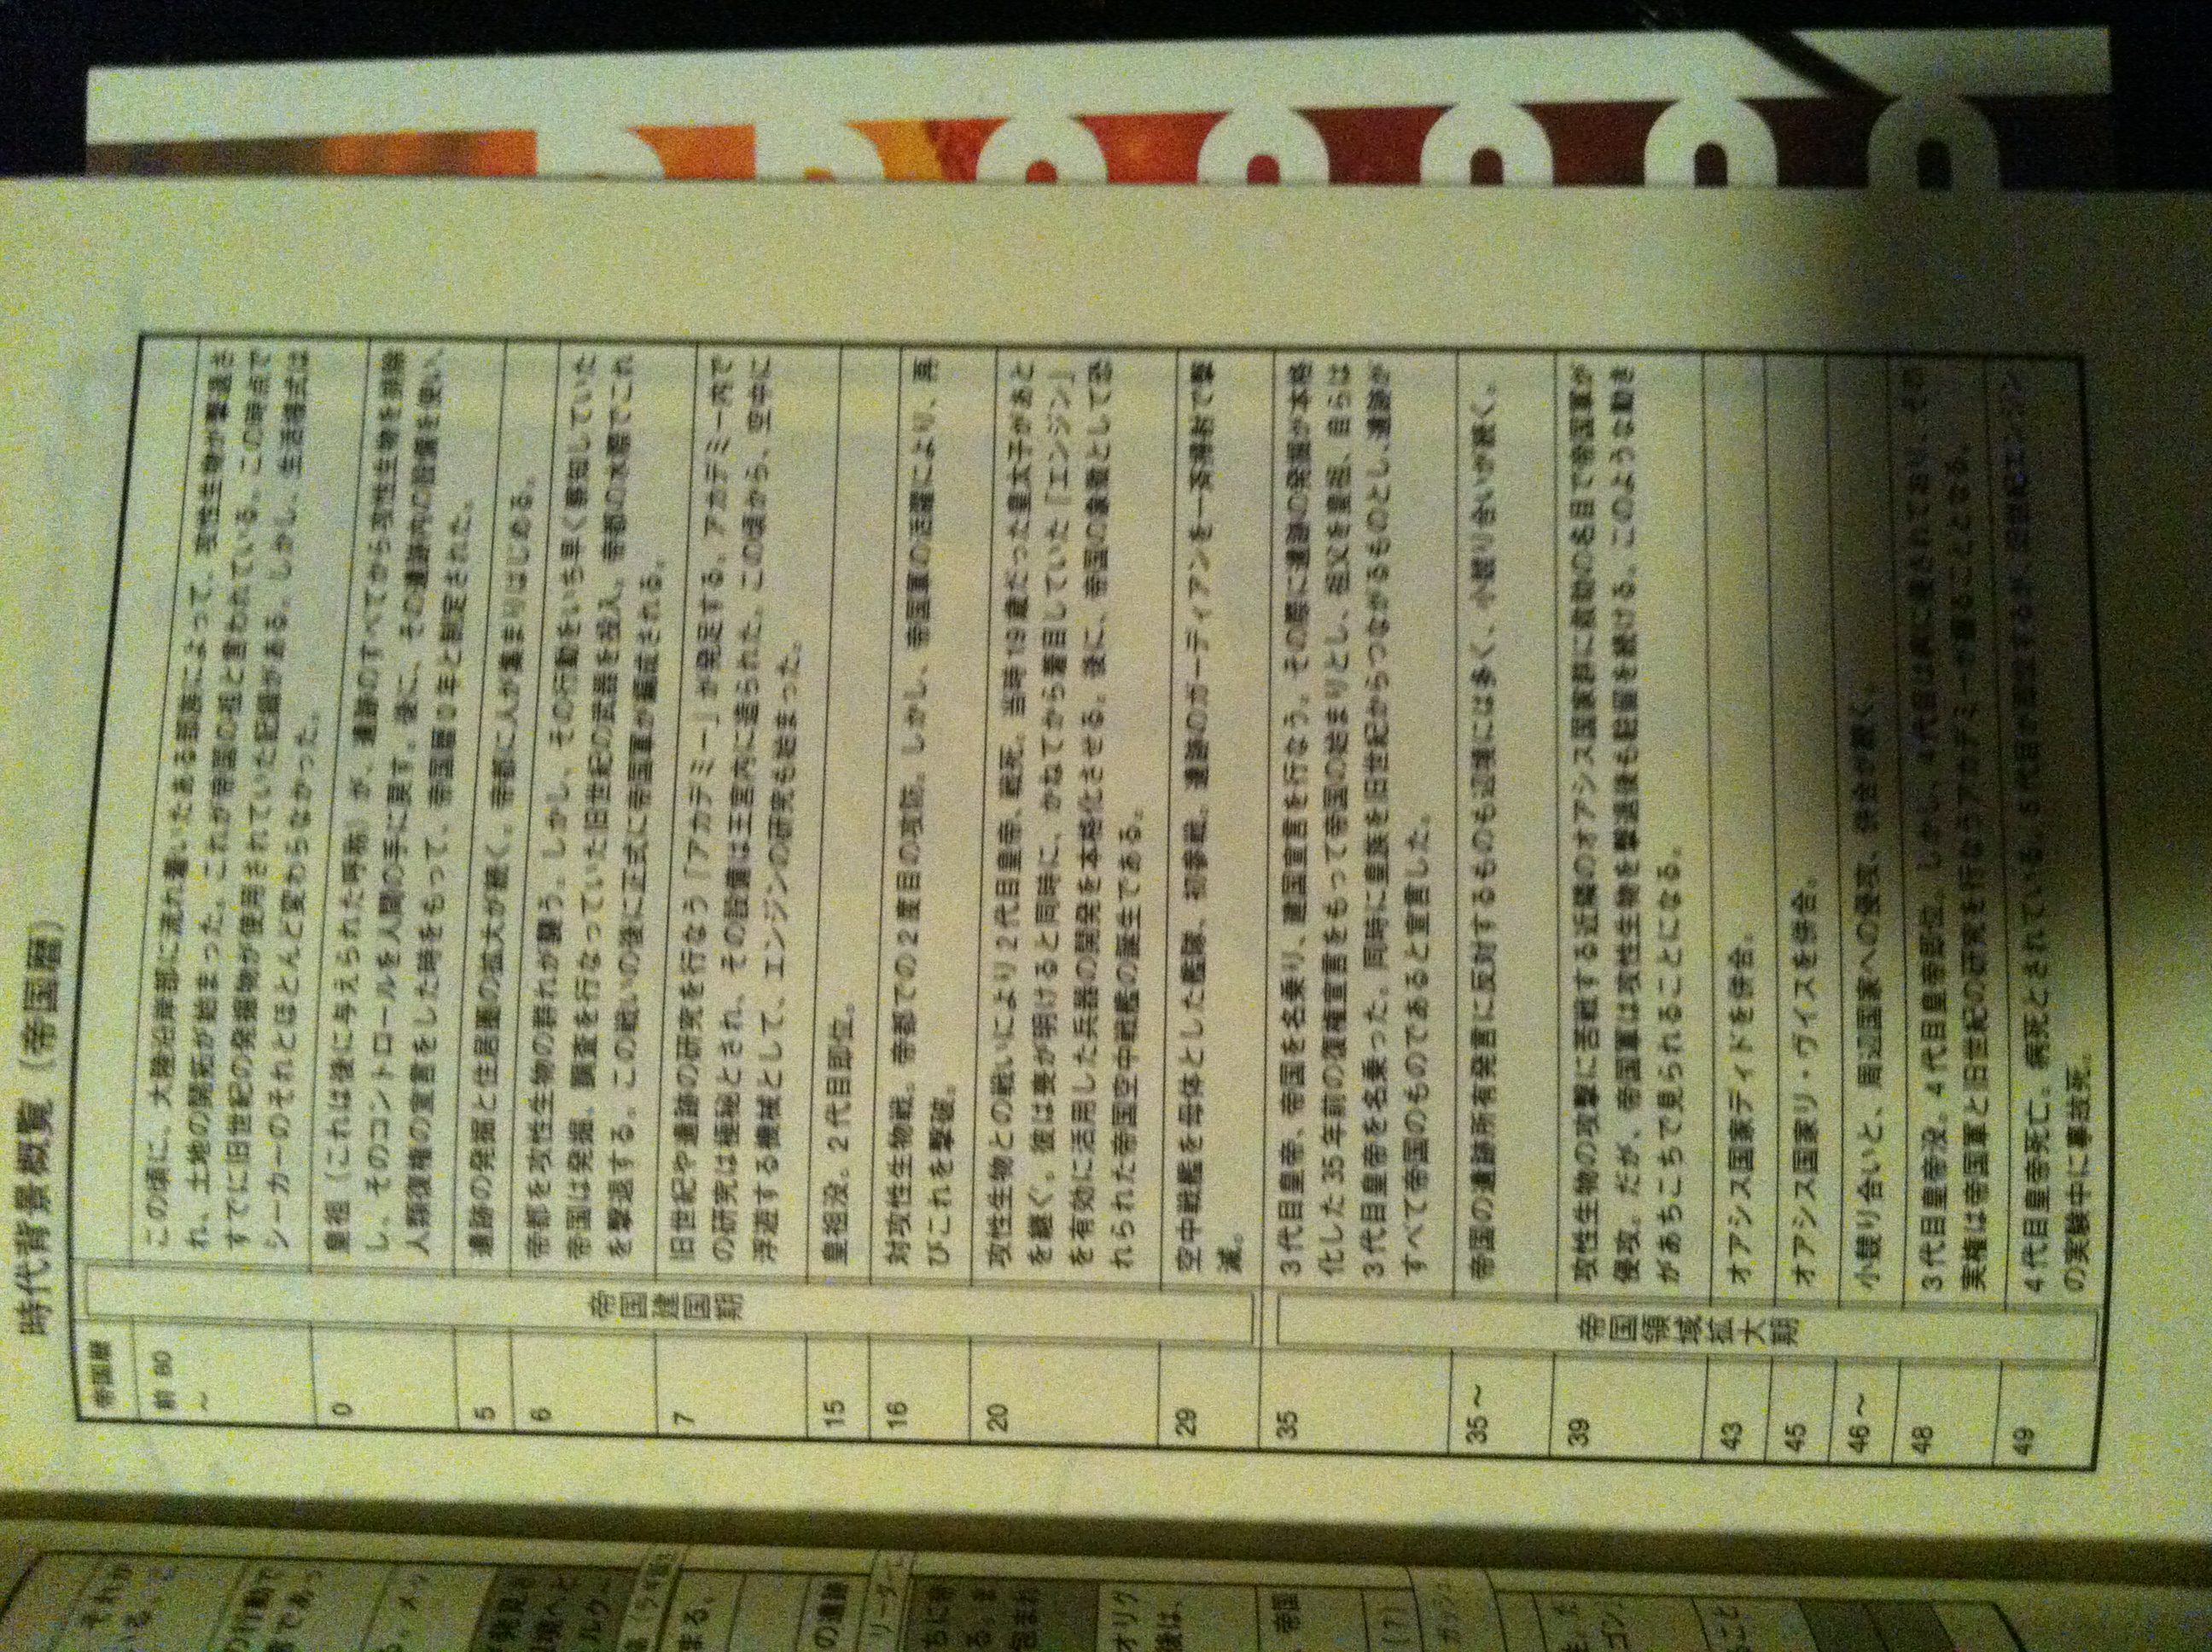 時代背景概覧（帝国暦）
帝国暦
前 80
～
帝国建国期
この頃に、大陸沿岸部に流れ着いたある部族によって、攻性生物が撃退さ
れ、土地の開拓が始まった。これが帝国の祖と言われている。この時点で
すでに旧世紀の発掘物が使用されていた記録がある。しかし、生活様式は
シーカーのそれとほとんど変わらなかった。
0
皇祖（これは後に与えられた呼称）が、遺跡のすべてから攻性生物を排除
し、そのコントロールを人間の手に戻す。後に、その遺跡内の設備を使い、
人類復権の宣言をした時をもって、帝国暦０年と制定された。
5
遺跡の発掘と住居圏の拡大が続く。帝都に人が集まりはじめる。
6
帝都を攻性生物の群れが襲う。しかし、その行動をいち早く察知していた
帝国は発掘、調査を行なっていた旧世紀の武器を投入。帝都の水際でこれ
を撃退する。この戦いの後に正式に帝国軍が編成される。
7
旧世紀や遺跡の研究を行なう「アカデミー」が発足する。アカデミー内で
の研究は極秘とされ、その設備は王宮内に造られた。この頃から、空中に
浮遊する機械として、エンジンの研究も始まった。
15
皇祖没。２代目即位。
16
対攻性生物戦。帝都での２度目の攻防。しかし、帝国軍の活躍により、再
びこれを撃破。
20
攻性生物との戦いにより２代目皇帝、戦死。当時19歳だった皇太子があと
を継ぐ。彼は喪が明けると同時に、かねてから着目していた「エンジン」
を有効に活用した兵器の開発を本格化させる。後に、帝国の象徴として恐
れられた帝国空中戦艦の誕生である。
29
空中戦艦を母体とした艦隊、初参戦。遺跡のガーディアンを一斉掃射で撃
滅。
帝国領域拡大期
35
３代目皇帝、帝国を名乗り、建国宣言を行なう。その際に遺跡の発掘が本格
化した35年前の復権宣言をもって帝国の始まりとし、祖父を皇祖、自らは
３代目皇帝を名乗った。同時に皇族を旧世紀からつながるものとし、遺跡が
すべて帝国のものであると宣言した。
35～
帝国の遺跡所有発言に反対するものも辺境には多く、小競り合いが続く。
39
攻性生物の攻撃に苦戦する近隣のオアシス国家群に救助の名目で帝国軍が
侵攻。だが、帝国軍は攻性生物を撃退後も駐留を続ける。このような動き
があちこちで見られることになる。
43
オアシス国家ティドを併合。
45
オアシス国家リ・ヴィスを併合。
46～
小競り合いと、周辺国家への侵攻、併合が続く。
48
３代目皇帝没。４代目皇帝即位。しかし、４代目は病に侵されており、その
実権は帝国軍と旧世紀の研究を行なうアカデミーが握ることとなる。
49
４代目皇帝死亡。病死とされている。５代目が即位するが、旧世紀エンジン
の実験中に事故死。